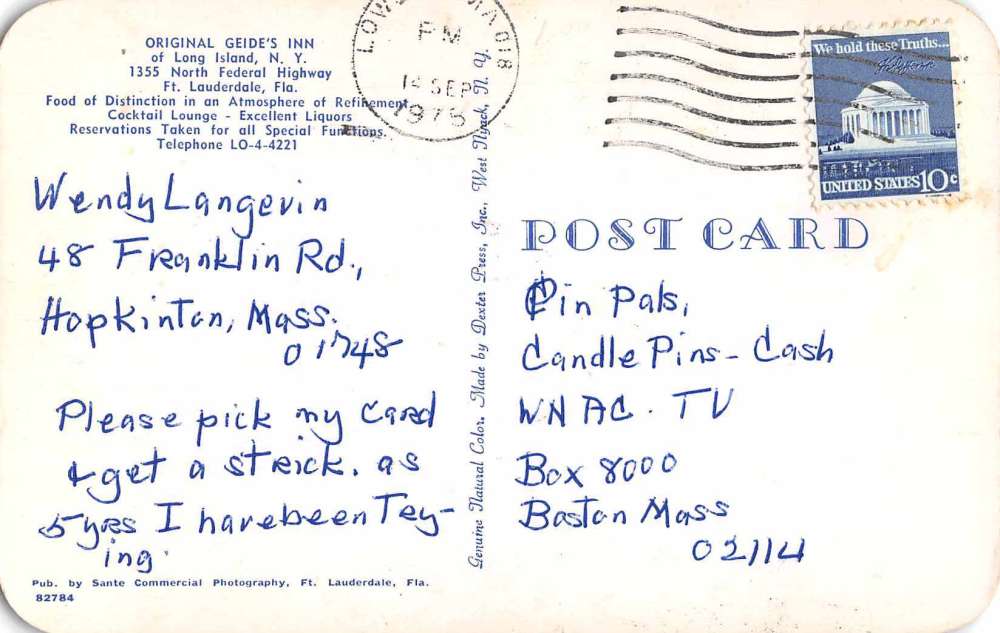 ORIGINAL GEIDE'S INN
of Long Island, N. Y.
1355 North Federal Highway
Ft. Lauderdale, Fla.
Food of Distinction in an Atmosphere of Refinement
Cocktail Lounge - Excellent Liquors
Reservations Taken for all Special Functions.
Telephone LO-4-4221
Wendy Langevin
48 Franklin Rd.,
Hopkinton, Mass.
01748
Please pick my card
& get a strick. as
5 yrs I have been Tey-
ing.
Pub. by Sante Commercial Photography, Ft. Lauderdale, Fla.
82784
Genuine Natural Color, Made by Dexter Press, Inc., West Nyack, N. Y.
PM
14 SEP
1975
018
We hold these Truths...
UNITED STATES 10c
POST CARD
Pin Pals,
Candle Pins - Cash
WNAC. TV
Box 8000
Boston Mass
02114